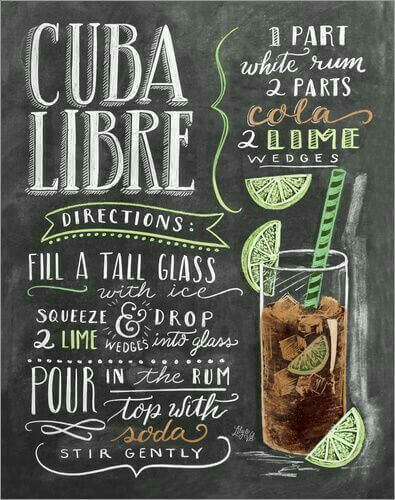 CUBA
LIBRE
1 PART
white rum
2 PARTS
cola
2 LIME
WEDGES
DIRECTIONS:
FILL A TALL GLASS
with ice
SQUEEZE & DROP
2 LIME WEDGES into glass
POUR IN the RUM
top with
soda
STIR GENTLY
Lily & Val